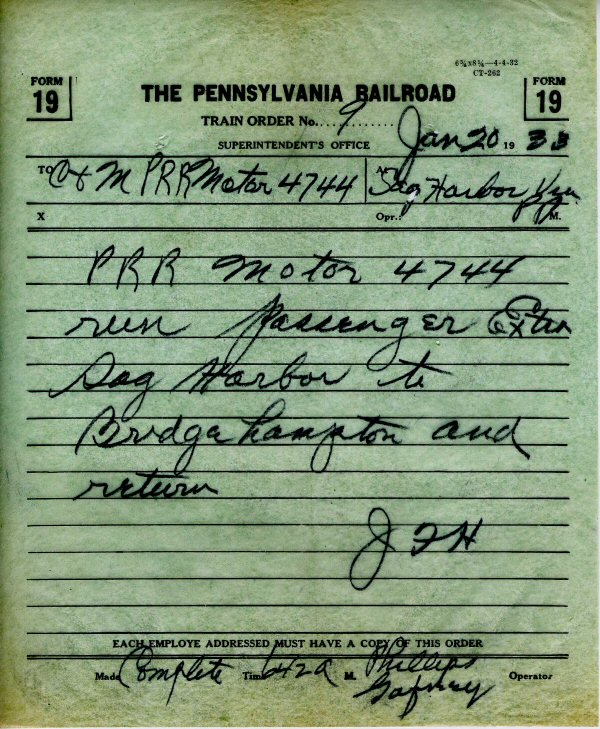 6¾x8¼—4-4-32
CT-262
FORM 19
THE PENNSYLVANIA RAILROAD
FORM 19
TRAIN ORDER No. 9
SUPERINTENDENT'S OFFICE Jan 20 19 33
TO C & M PRR Motor 4744 AT Sag Harbor
X Opr.: M.
PRR Motor 4744
run Passenger Extra
Sag Harbor to
Bridgehampton and
return
J F H
EACH EMPLOYE ADDRESSED MUST HAVE A COPY OF THIS ORDER
Made Complete Time 642a M. Phillips Operator